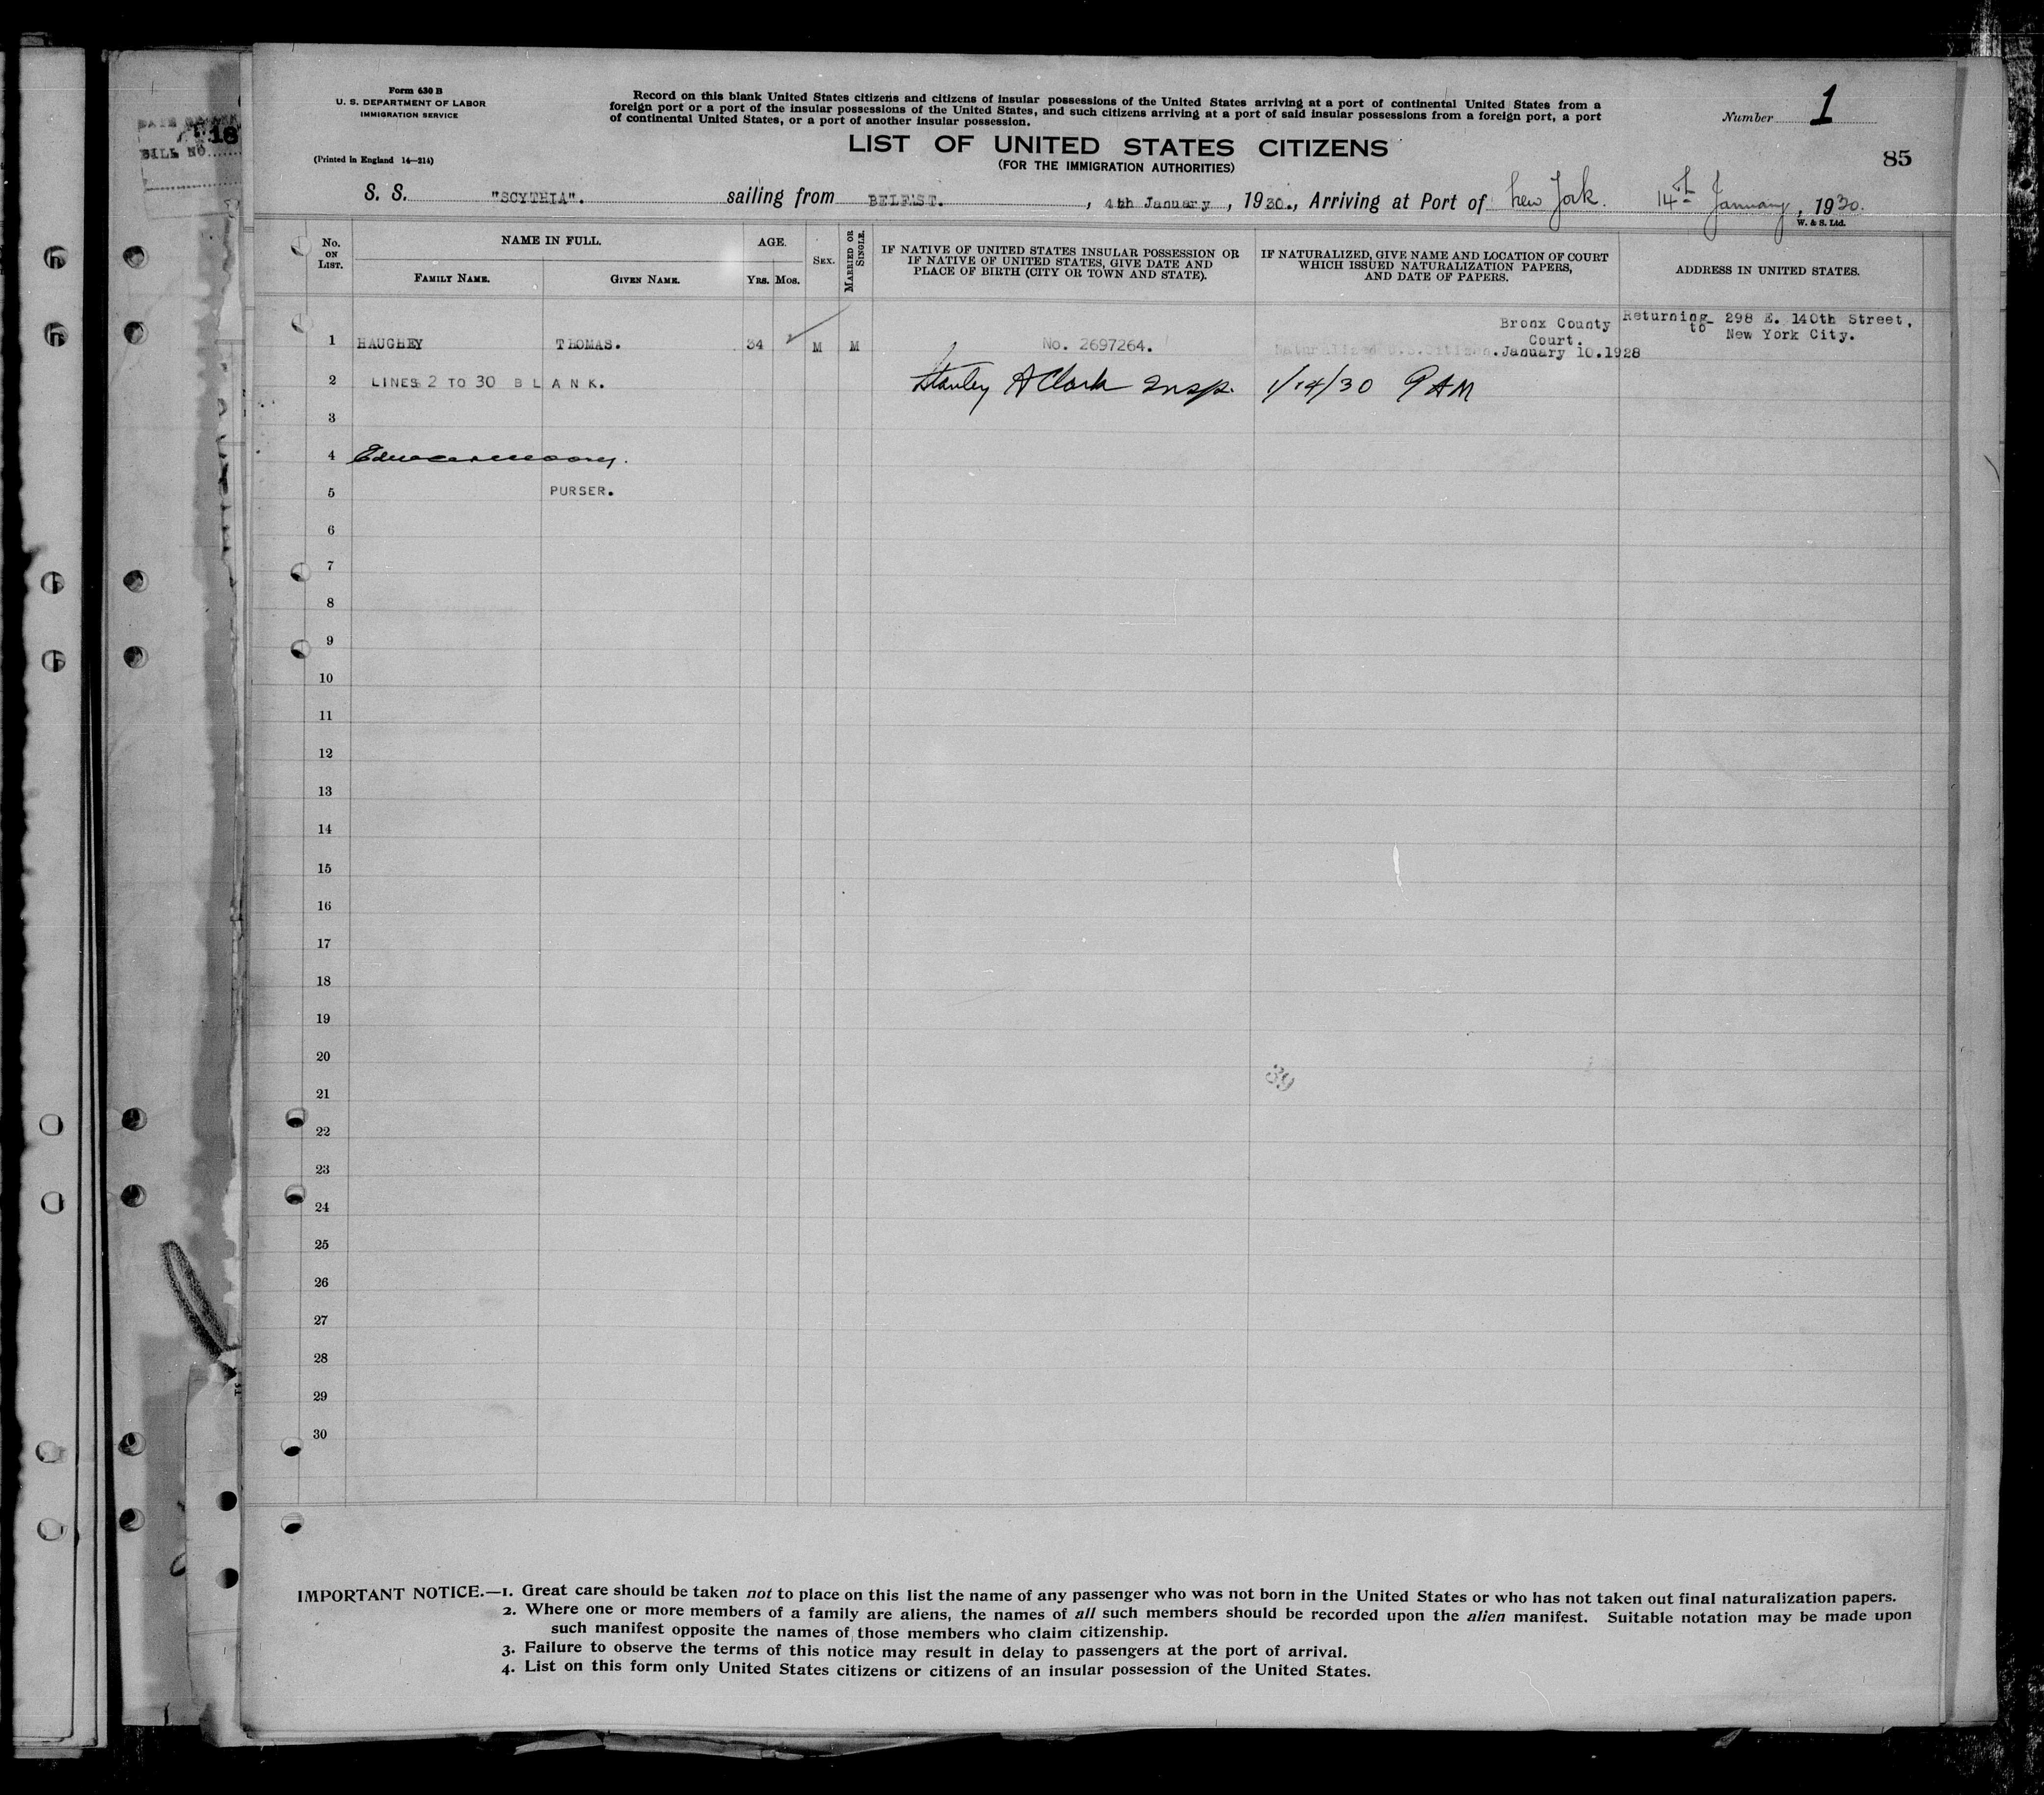 Form 630 B
U. S. DEPARTMENT OF LABOR
IMMIGRATION SERVICE
(Printed in England 14—214)
Record on this blank United States citizens and citizens of insular possessions of the United States arriving at a port of continental United States from a
foreign port or a port of the insular possessions of the United States, and such citizens arriving at a port of said insular possessions from a foreign port, a port
of continental United States, or a port of another insular possession.
Number 1
LIST OF UNITED STATES CITIZENS
(FOR THE IMMIGRATION AUTHORITIES)
85
18
BILL NO
S. S. "SCYTHIA". sailing from BELFAST. , 4th January , 1930., Arriving at Port of New York. 14th January, 1930.
W. & S. Ltd.
No. ON LIST. NAME IN FULL. FAMILY NAME. GIVEN NAME. AGE. YRS. MOS. SEX. MARRIED OR SINGLE.
IF NATIVE OF UNITED STATES INSULAR POSSESSION OR
IF NATIVE OF UNITED STATES, GIVE DATE AND
PLACE OF BIRTH (CITY OR TOWN AND STATE).
IF NATURALIZED, GIVE NAME AND LOCATION OF COURT
WHICH ISSUED NATURALIZATION PAPERS,
AND DATE OF PAPERS.
ADDRESS IN UNITED STATES.
1 HAUGHEY THOMAS. 34 M M No. 2697264. Naturalised U.S.Citizen. Bronx County
Court.
January 10.1928
Returning to 298 E. 140th Street,
New York City.
2 LINES 2 TO 30 BLANK. Stanley A Clark Insp. 1/14/30 9 AM
3
4
5 PURSER.
6
7
8
9
10
11
12
13
14
15
16
17
18
19
20
39
21
22
23
24
25
26
27
28
29
30
IMPORTANT NOTICE.—1. Great care should be taken not to place on this list the name of any passenger who was not born in the United States or who has not taken out final naturalization papers.
2. Where one or more members of a family are aliens, the names of all such members should be recorded upon the alien manifest. Suitable notation may be made upon
such manifest opposite the names of those members who claim citizenship.
3. Failure to observe the terms of this notice may result in delay to passengers at the port of arrival.
4. List on this form only United States citizens or citizens of an insular possession of the United States.